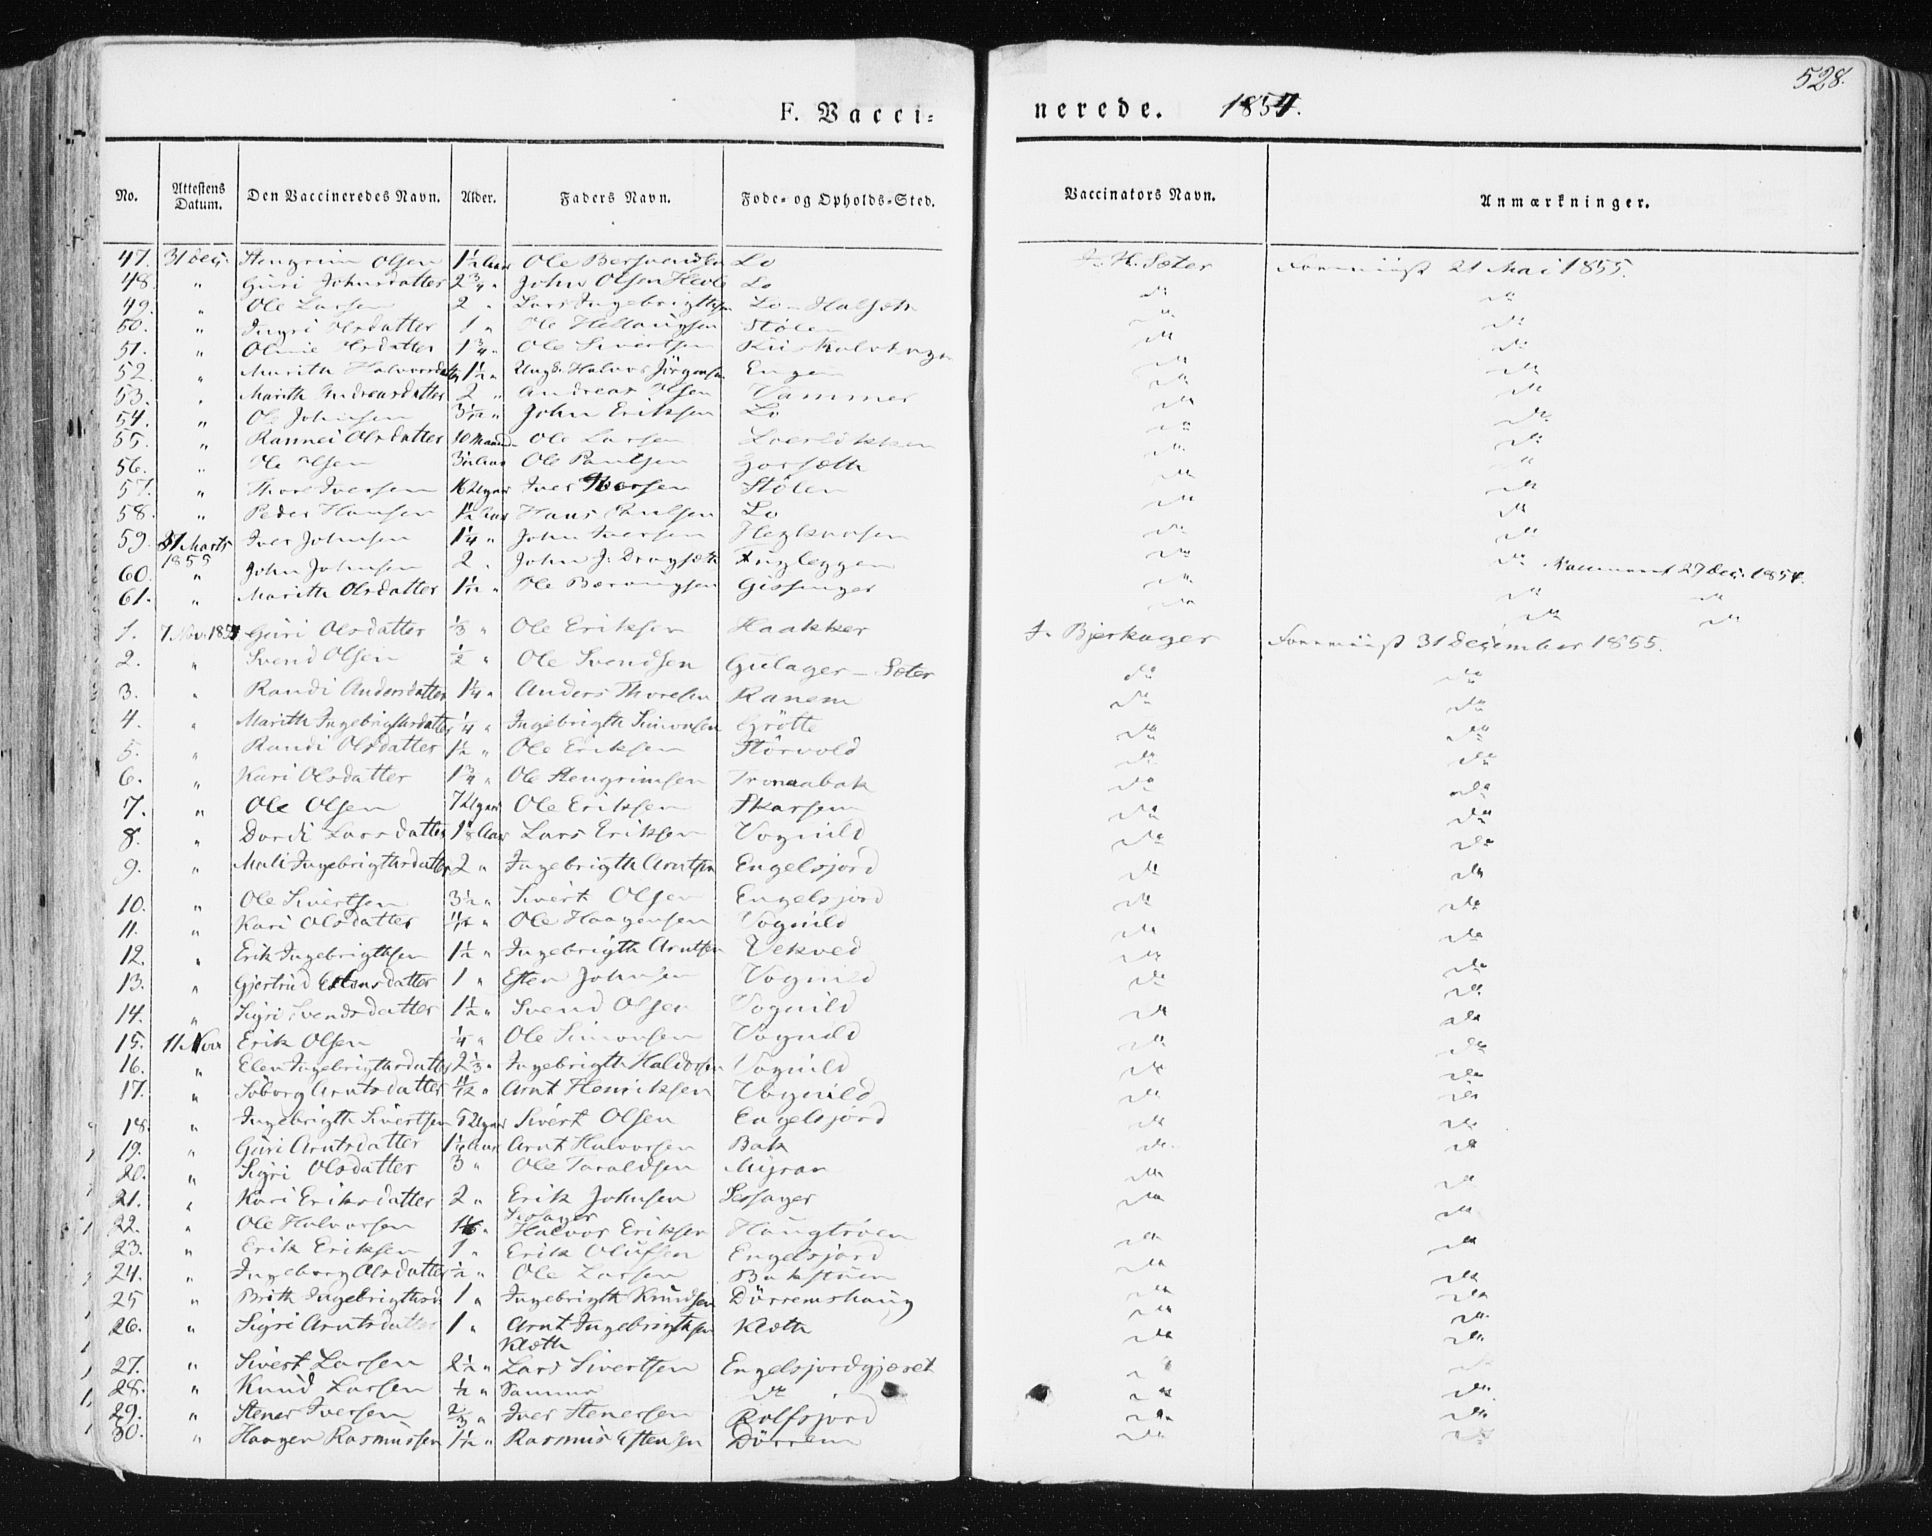 528.
F. Vacci- nerede. 1854.
No. Attestens Datum. Den Vaccineredes Navn. Alder. Faders Navn. Føde- og Opholds-Sted. Vaccinators Navn. Anmærkninger.
47. 31 Dec. Stengrim Olsen 1½ Aar Ole Lo J. H. Sæter 21 Mai 1855.
48. " Guri Johnsdatter 2¾ " John Olsen Lo do do
49. " Ole Larsen 2 " Lars Ingebrigthsen Lo - Halseth do do
50. " Ingri Olsdatter 1 " Ole Stølen do do
51. " Olsdatter 1¾ " Ole Sivertsen do do
52. " Marith Halvorsdatter 1½ " Ungk. Halvor Jørgensen Engen do do
53. " Marith Andreasdatter 2 " Andreas Olsen Vammer do do
54. " Ole Johnsen 3½ " John Eriksen Lo do do
55. " Rannei Olsdatter 10 Maaned Ole Larsen do do
56. " Ole Olsen Ole Paulsen do do
57. " Thore Iversen 16 Uger Iver Stølen do do
58. " Peder Hansen 1½ Aar Hans Paulsen Lo do do
59. 31 Marts 1855 Iver Johnsen 1¼ " John Iversen do do
60. " John Johnsen 2 " John J. Drugseth do do 27 Dec. 1854.
61. " Marith Olsdatter 1½ " Ole Gissinger do do do
1. 7 Nov. 1854 Guri Olsdatter ⅓ " Ole Eriksen Haakker J. Bjerkager 31 December 1855.
2. " Svend Olsen ½ " Ole Svendsen Gulager - Sæter do do
3. " Randi Andersdatter 1¼ " Anders Thoresen Ranem do do
4. " Marith Ingebrigthsdatter ¼ " Ingebrigth Simonsen Grøtte do do
5. " Randi Olsdatter 1½ " Ole Eriksen Storvold do do
6. " Kari Olsdatter 1¾ " Ole Stengrimsen do do
7. " Ole Olsen 7 Uger Ole Eriksen Skarsem do do
8. " Dordi Larsdatter Aar Lars Eriksen Vognild do do
9. " Mali Ingebrigthsdatter 2 " Ingebrigth Arntsen Engelsjord do do
10. " Ole Sivertsen 3½ " Sivert Olsen Engelsjord do do
11. " Kari Olsdatter Ole Haagensen Vognild do do
12. " Erik Ingebrigthsen 1½ " Ingebrigth Arntsen Vekved do do
13. " Gjertrud Estensdatter 1 " Esten Johnsen Vognild do do
14. " Sigri Svendsdatter 1½ " Svend Olsen Vognild do do
15. 11. Nov. Erik Olsen ¼ " Ole Simonsen Vognild do do
16. " Elen Ingebrigthsdatter 2⅓ " Ingebrigth Haldorsen Vognild do do
17. " Soborg Arntsdatter Arnt Henriksen Vognild do do
18. " Ingebrigth Sivertsen 5 Uger Sivert Olsen Engelsjord do do
19. " Guri Arntsdatter Aar Arnt Halvorsen Bak do do
20. " Sigri Olsdatter 3 " Ole Taraldsen Myran do do
21. " Kari Eriksdatter 2 " Erik Johnsen Sessager Sessager do do
22. " Ole Halvorsen Halvor Eriksen Haugtrøen do do
23. " Erik Eriksen 1 " Erik Olufsen Engelsjord do do
24. " Ingeborg Olsdatter ½ " Ole Larsen Bakstuen do do
25 " Brith Ingebrigthsd 1 " Ingebrigth Knudsen Dørremshaug do do
26. " Sigri Arntsdatter 1 " Arnt Ingebrigthsen Klæth Klæth do do
27. " Sivert Larsen 2½ " Lars Sivertsen Engelsjordgjæret do do
28. " Knud Larsen ½ " Samme do do do
29. " Stener Iversen ⅔ " Iver Stenersen Rolfsjord do do
30. " Haagen Rasmussen 1½ " Rasmus Estensen Dørrem do do